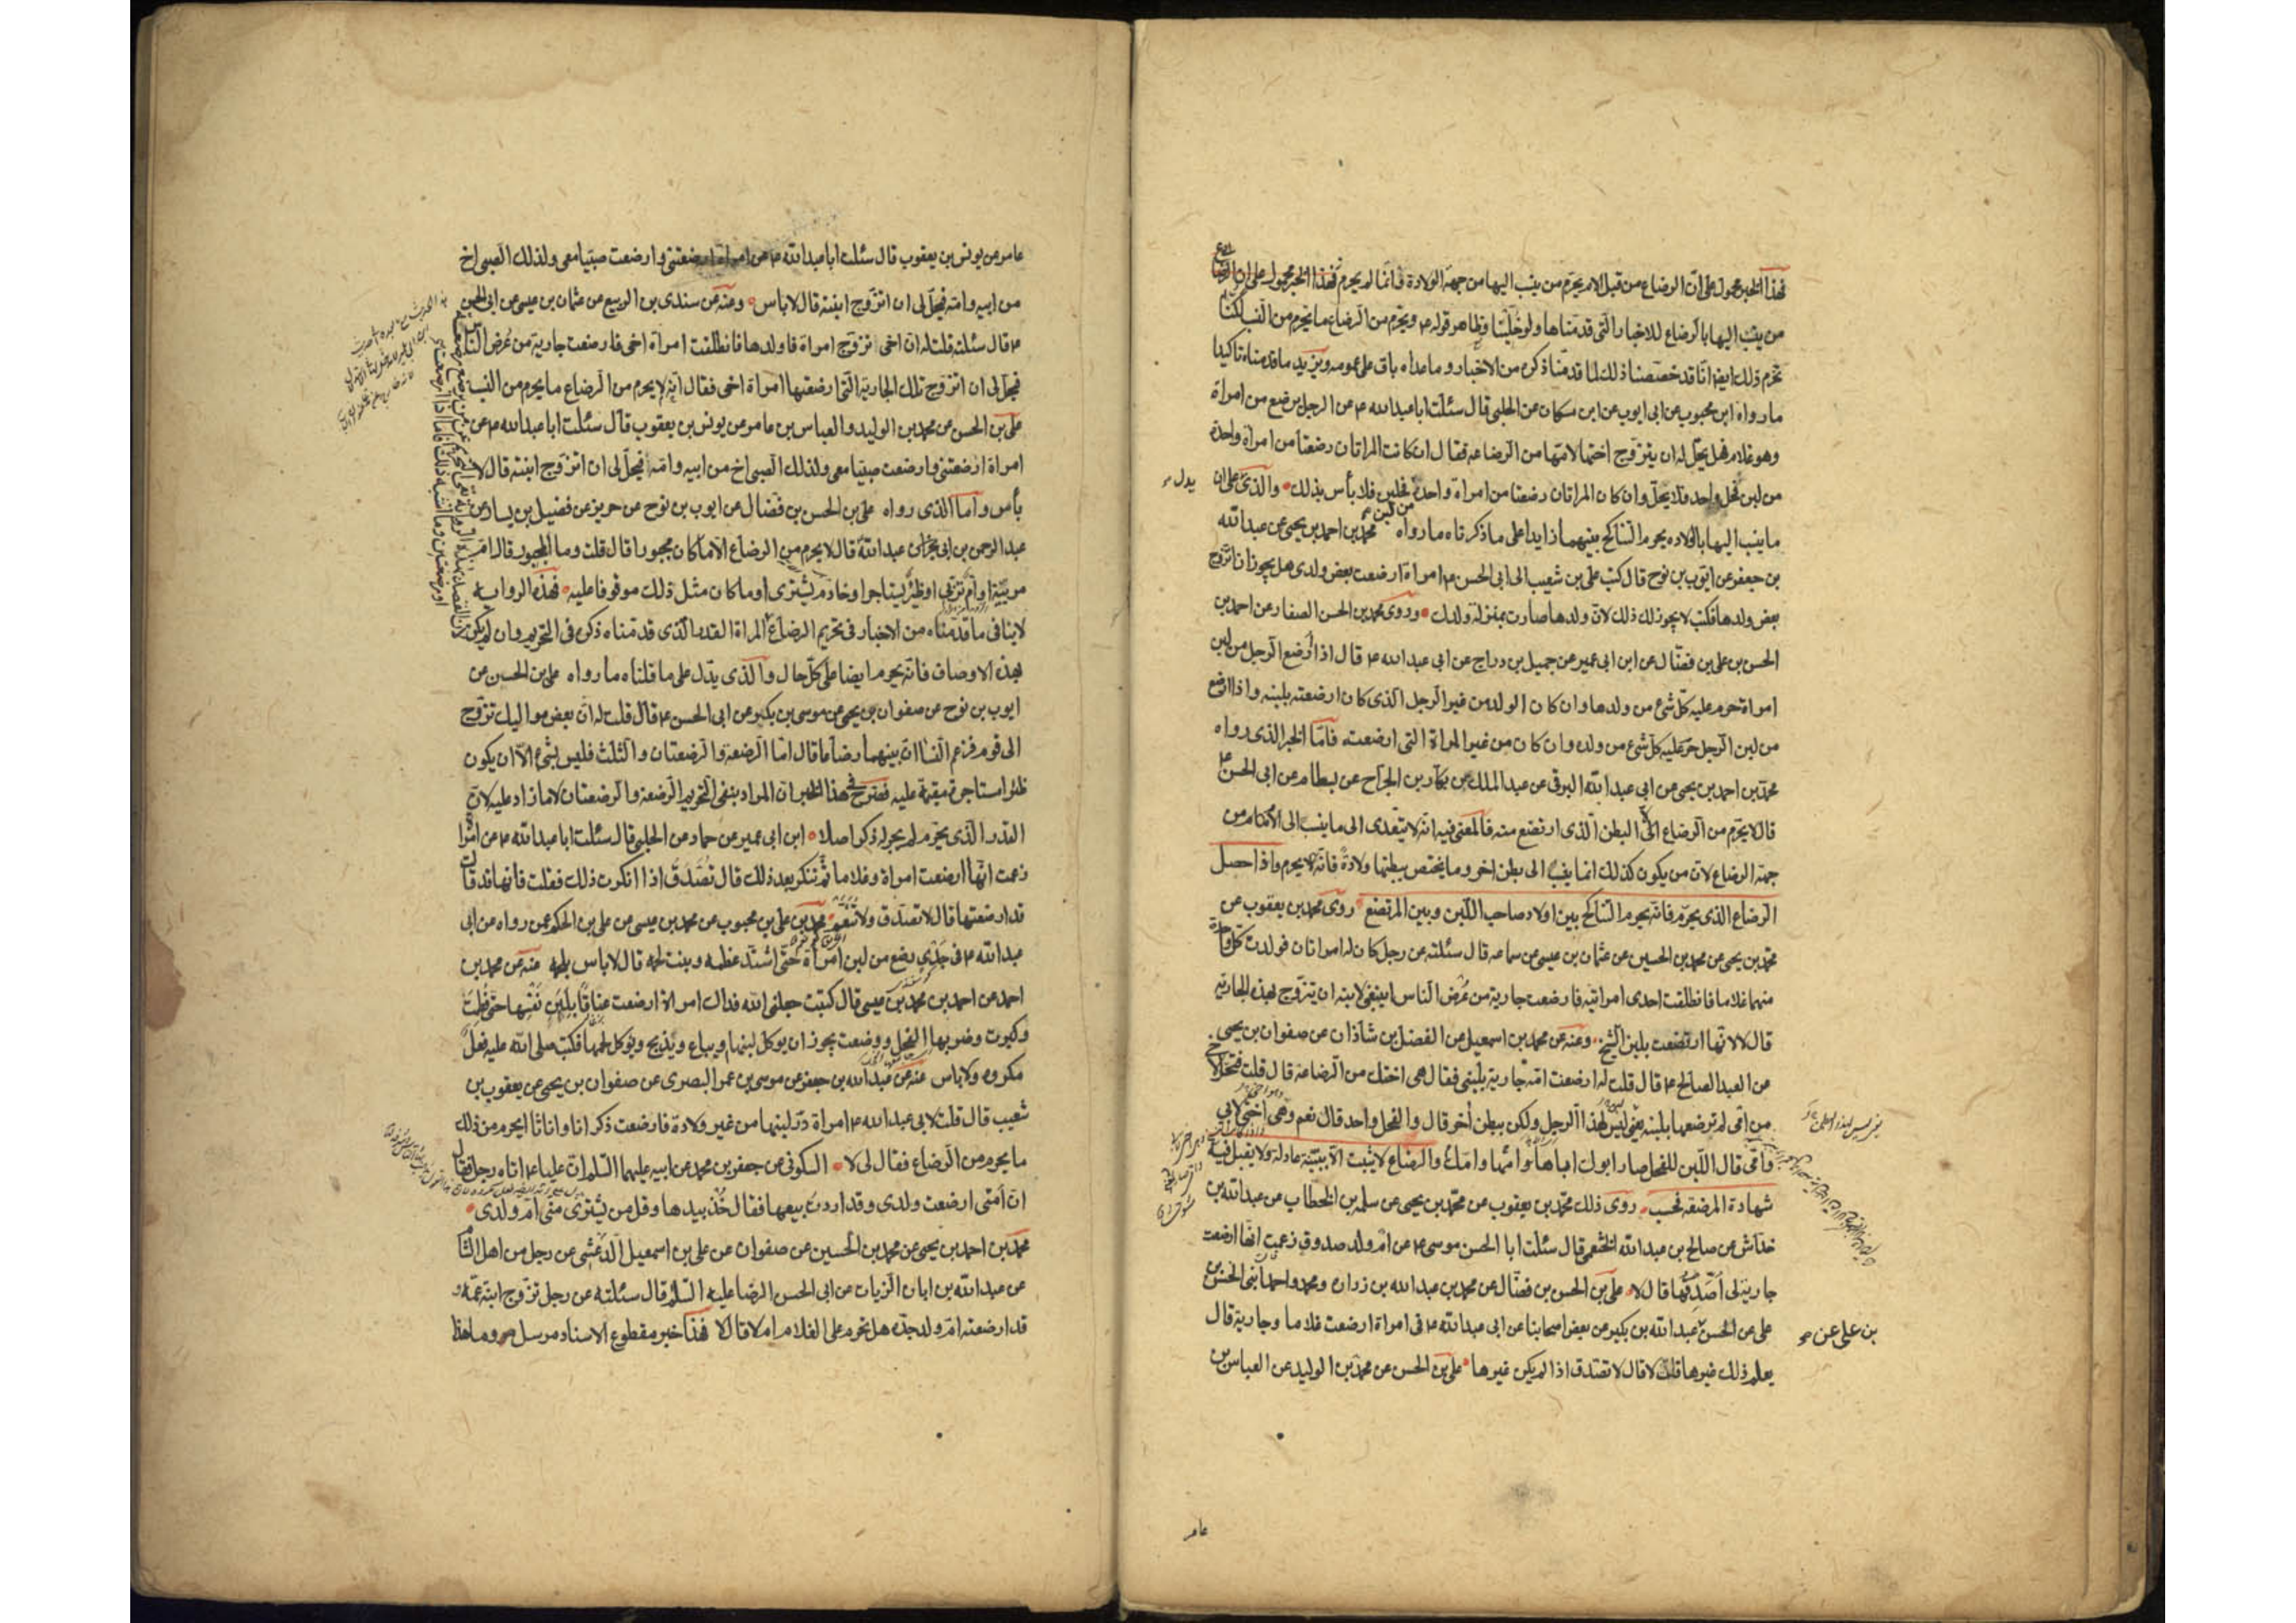 فهذا الخبر محمول على ان الرضاع من قبل الام يحرم من ينسب اليها من جهة الولادة وانما لم يحرم
من ينسب اليها بالرضاع للاخبار التي قدمناها ولو خلينا وظاهر قوله ع ويحرم من الرضاع ما يحرم من النسب لكنا
نحرم ذلك ايضا الا انا قد خصصنا ذلك لما قدمنا ذكره من الاخبار وما عداه باق على عمومه ويزيد ما قدمناه تاكيدا
ما رواه ابن محبوب عن ابى ايوب عن ابن مسكان عن الحلبى قال سئلت ابا عبدالله ع عن الرجل يرضع من امراة
وهو غلام فهل يحل له ان يتزوج اختها لامها من الرضاعة فقال ان كانت المراتان رضعتا من امراة واحدة
من لبن فحل واحد فلا يحل وان كان المراتان رضعتا من امراة واحدة من لبن فحلين فلا بأس بذلك والذى يدل على ان
ما ينسب اليها بالولادة يحرم التناكح بينهما زايدا على ما ذكرناه ما رواه محمد بن احمد بن يحيى عن عبدالله
بن جعفر عن ايوب بن نوح قال كتب على بن شعيب الى ابى الحسن ع امراة ارضعت بعض ولدى هل يجوز ان اتزوج
بعض ولدها فكتب لا يجوز لك ذلك لان ولدها صارت بمنزلة ولدك وروى محمد بن الحسن الصفار عن احمد بن
الحسن بن على بن فضال عن ابن ابى عمير عن جميل بن دراج عن ابى عبدالله ع قال اذا رضع الرجل من لبن
امراة حرم عليه كل شئ من ولدها وان كان الولد من غير الرجل الذى كان ارضعته بلبنه واذا رضع
من لبن الرجل حرم عليه كل شئ من ولده وان كان من غير المراة التى ارضعته فاما الخبر الذى رواه
محمد بن احمد بن يحيى عن ابى عبدالله البرقى عن عبد الملك عن بكار بن الجراح عن بسطام عن ابى الحسن ع
قال لا يحرم من الرضاع الا البطن الذى ارتضع منه فالمعنى فيه انه لا يتعدى الى ما ينسب الى الام من
جهة الرضاع لان من يكون كذلك انما ينسب الى بطن اخر وما يختص ببطنها ولادة فانه لا يحرم واذا حصل
الرضاع الذى يحرم فانه يحرم التناكح بين اولاد صاحب اللبن وبين المرتضع روى محمد بن يعقوب عن
محمد بن يحيى عن محمد بن الحسين عن عثمان بن عيسى عن سماعة قال سئلته عن رجل كان له امراتان فولدت كل واحدة
منهما غلاما فانطلقت احدى امراتيه فارضعت جارية من عرض الناس اينبغى لابنه ان يتزوج بهذه الجارية
قال لا لانها ارتضعت بلبن الشيخ وعنه عن محمد بن اسمعيل عن الفضل بن شاذان عن صفوان بن يحيى
عن العبد الصالح ع قال قلت له ارضعت امى جارية بلبنى فقال هى اختك من الرضاعة قال قلت فتحل لاخ
من امى لم ترضعها بلبنه يعنى ليس لهذا الرجل ولكن ببطن آخر قال والفحل واحد قال نعم وهى اختى لابى
وامى قال اللبن للفحل صار ابوك اباها وامك امها والرضاع لا يثبت الا ببينة عادلة ولا يقبل فيه
شهادة المرضعة فحسب روى ذلك محمد بن يعقوب عن محمد بن يحيى عن سلمة بن الخطاب عن عبدالله بن
خداش عن صالح بن عبدالله الخثعمى قال سئلت ابا الحسن موسى ع عن ام ولد صدوق زعمت انها ارضعت
جارية لى اصدقها قال لا على بن الحسن بن فضال عن محمد بن عبدالله بن زرارة ومحمد واحمد ابنى الحسن بن
على عن الحسن عبدالله بن بكير عن بعض اصحابنا عن ابى عبدالله ع فى امراة ارضعت غلاما وجارية قال
يعلم ذلك غيرها قلت لا قال لا تصدق اذا لم يكن غيرها على بن الحسن عن محمد بن الوليد عن العباس بن
يدل
بن على عن
عامر
عامر عن يونس بن يعقوب قال سئلت ابا عبدالله ع عن امراة ارضعتنى وارضعت صبيا معى ولذلك الصبى اخ
من ابيه وامه فيحل لى ان اتزوج ابنته قال لا باس وعنه عن سندى بن الربيع عن عثمان بن عيسى عن ابى الحسن
ع قال سئلته قلت له ان اخى تزوج امراة فاولدها فانطلقت امراة اخى فارضعت جارية من عرض الناس
فيحل لى ان اتزوج تلك الجارية التى ارضعتها امراة اخى فقال لا انه يحرم من الرضاع ما يحرم من النسب
على بن الحسن عن محمد بن الوليد والعباس بن عامر عن يونس بن يعقوب قال سئلت ابا عبدالله ع عن
امراة ارضعتنى وارضعت صبيا معى ولذلك الصبى اخ من ابيه وامه فيحل لى ان اتزوج ابنته قال لا
بأس واما الذى رواه على بن الحسن بن فضال عن ايوب بن نوح عن حريز عن فضيل بن يسار عن
عبد الرحمن بن ابى عبدالله قال لا يحرم من الرضاع الا ما كان مجبورا قال قلت وما المجبور قال ام
مربية او ام تربى او ظئر يستاجر او خادم يشترى او ما كان مثل ذلك موقوفا عليه فهذه الرواية
لا ينافى ما قدمناه من الاخبار فى تحريم الرضاع المراة القدر الذى قدمناه ذكره فى التحريم وان لم يكن
بهذه الاوصاف فانه يحرم ايضا على كل حال والذى يدل على ما قلناه ما رواه على بن الحسن عن
ايوب بن نوح عن صفوان بن يحيى عن موسى بن بكير عن ابى الحسن ع قال قلت له ان بعض مواليك تزوج
الى قوم فزعم النساء ان بينهما رضاعا قال اما الرضعة والرضعتان والثلث فليس بشئ الا ان يكون
ظئرا استاجرة مقيمة عليه فصرح فى هذا الخبر ان المراد بنفى التحريم الرضعة والرضعتان لا ما زاد عليه لان
القدر الذى يحرم لم يجر له ذكر اصلا ابن ابى عمير عن حماد عن الحلبى قال سئلت ابا عبدالله ع عن امراة
زعمت انها ارضعت امراة وغلاما ثم تنكر بعد ذلك قال تصدق اذا انكرت ذلك فقلت فانها قد قالت
قد ارضعتها قال لا تصدق ولا تنعم محمد بن على بن محبوب عن محمد بن عيسى عن على بن الحكم عمن رواه عن ابى
عبدالله ع فى جدى رضع من لبن امراة حتى اشتد عظمه ونبت لحمه قال لا باس بلحمه عنه عن محمد بن
احمد عن احمد بن محمد بن عيسى قال كتبت جعلنى الله فداك امراة ارضعت عناقا بلبن نفسها حتى فطمت
وكبرت وضربها الفحل ووضعت يجوز ان يوكل لبنها ويباع ويذبح ويؤكل لحمها فكتب صلى الله عليه فعل
مكروه ولا باس عنه عن عبدالله بن جعفر عن موسى بن عمر البصرى عن صفوان بن يحيى عن يعقوب بن
شعيب قال قلت لابى عبدالله ع امراة در لبنها من غير ولادة فارضعت ذكرانا واناثا ايحرم من ذلك
ما يحرم من الرضاع فقال لى لا السكونى عن جعفر بن محمد عن ابيه عليهما السلم ان عليا ع اتاه رجل فقال
ان امتى ارضعت ولدى وقد اردت بيعها فقال خذ بيدها وقل من يشترى منى ام ولدى
محمد بن احمد بن يحيى عن محمد بن الحسين عن صفوان عن على بن اسمعيل الدغشى عن رجل من اهل الشام
عن عبدالله بن ابان الزيات عن ابى الحسن الرضا عليه السلم قال سئلته عن رجل تزوج ابنة عمه و
قد ارضعته ام ولد جده هل تحرم على الغلام ام لا قال لا فهذا خبر مقطوع الاسناد مرسل وما هذا